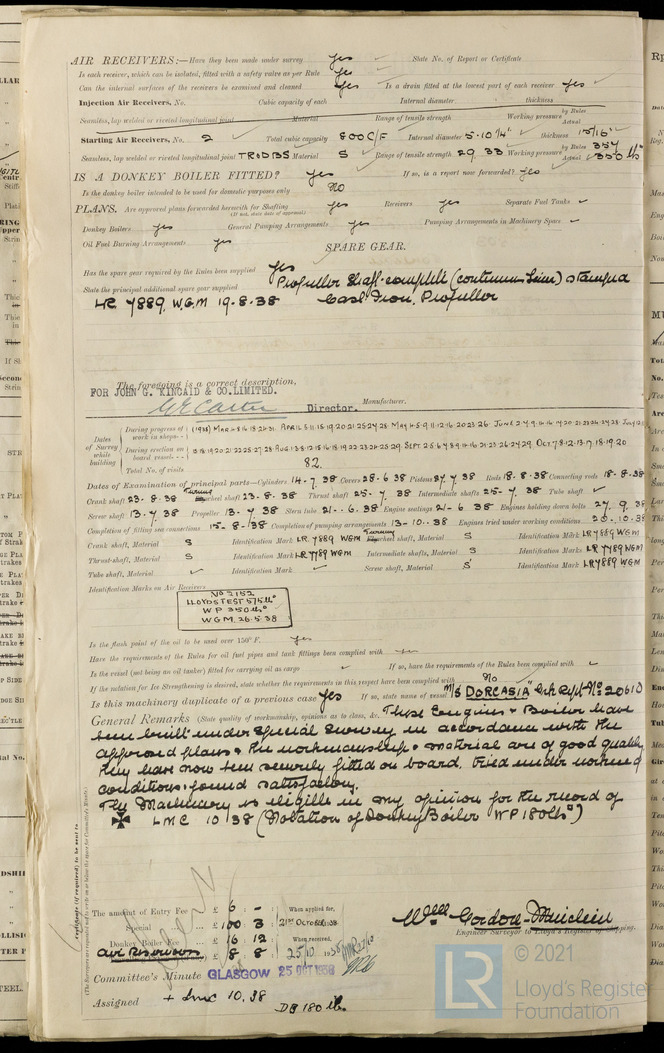 AIR RECEIVERS:—Have they been made under survey yes State No. of Report or Certificate
Is each receiver, which can be isolated, fitted with a safety valve as per Rule yes
Can the internal surfaces of the receivers be examined and cleaned yes Is a drain fitted at the lowest part of each receiver yes
Injection Air Receivers, No. Cubic capacity of each Internal diameter thickness
Seamless, lap welded or riveted longitudinal joint Material Range of tensile strength Working pressure by Rules Actual
Starting Air Receivers, No. 2 Total cubic capacity 800 C/F Internal diameter 5-10 1/4" thickness 15/16"
Seamless, lap welded or riveted longitudinal joint TRDDBS Material S Range of tensile strength 29.33 Working pressure by Rules 357 Actual 350 lbs
IS A DONKEY BOILER FITTED? yes If so, is a report now forwarded? yes
Is the donkey boiler intended to be used for domestic purposes only No
PLANS. Are approved plans forwarded herewith for Shafting yes Receivers yes Separate Fuel Tanks
(If not, state date of approval)
Donkey Boilers yes General Pumping Arrangements yes Pumping Arrangements in Machinery Space
Oil Fuel Burning Arrangements yes
SPARE GEAR.
Has the spare gear required by the Rules been supplied yes
State the principal additional spare gear supplied Propellor Shaft complete (continuous liner) stamped
LR 7889. W.G.M 19.8.38 Cast Iron. Propellor
The foregoing is a correct description,
FOR JOHN G. KINCAID & CO. LIMITED.
Director. Manufacturer.
Dates of Survey while building
During progress of work in shops -- (1938) MAR 4.8.16.18.24.31. APRIL 5.11.15.19.20.21.25.27.28
During erection on board vessel --
Total No. of visits 82.
Dates of Examination of principal parts—Cylinders 14.7.38 Covers 28.6.38 Pistons 27.7.38 Rods 18.8.38 Connecting rods 18.8.38
Crank shaft 23.8.38 Thrust shaft 23.8.38 Thrust shaft 25.7.38 Intermediate shafts 25.7.38 Tube shaft
Screw shaft 13.7.38 Propeller 13.7.38 Stern tube 21.6.38 Engine seatings 21.6.38 Engines holding down bolts 27.9.38
Completion of fitting sea connections 15.8.38 Completion of pumping arrangements 13.10.38 Engines tried under working conditions 20.10.38
Crank shaft, Material S Identification Mark LR 7889 WGM Flywheel shaft, Material S Identification Mark LR 7889 WGM
Thrust shaft, Material S Identification Mark LR 7789 WGM Intermediate shafts, Material S Identification Marks LR 7789 WGM
Tube shaft, Material Identification Mark Screw shaft, Material S Identification Mark LR 7889 WGM
Identification Marks on Air Receivers
No 2152
LLOYDS TEST 575 lb
W P 350 lb
W.G.M. 26.5.38
Is the flash point of the oil to be used over 150° F. yes
Have the requirements of the Rules for oil fuel pipes and tank fittings been complied with yes
Is the vessel (not being an oil tanker) fitted for carrying oil as cargo If so, have the requirements of the Rules been complied with
If the notation for Ice Strengthening is desired, state whether the requirements in this respect have been complied with No
Is this machinery duplicate of a previous case yes If so, state name of vessel M/S "DORCASIA" Gck Rept No 20610
General Remarks (State quality of workmanship, opinions as to class, &c. These Engines & Boiler have
been built under Special Survey in accordance with the
approved plans & the workmanship & material are of good quality
they have now been securely fitted on board, tried under working
conditions & found satisfactory.
The Machinery is eligible in my opinion for the record of
LMC 10.38 (Notation of Donkey Boiler WP 180 lbs)
The amount of Entry Fee .. £ 6 : -
Special ... £ 100 3
Donkey Boiler Fee ... £ 16 12
Air Receivers £ 8 8
When applied for, 21st Octo 1938
When received, 25/10 1938
Wm Gordon-Muirhead
Engineer Surveyor to Lloyd's Register of Shipping.
Committee's Minute GLASGOW 25 OCT 1938
Assigned + LMC 10.38
DB 180 lb.
Certificate (if required) to be sent to
© 2021
Lloyd's Register
Foundation
LR